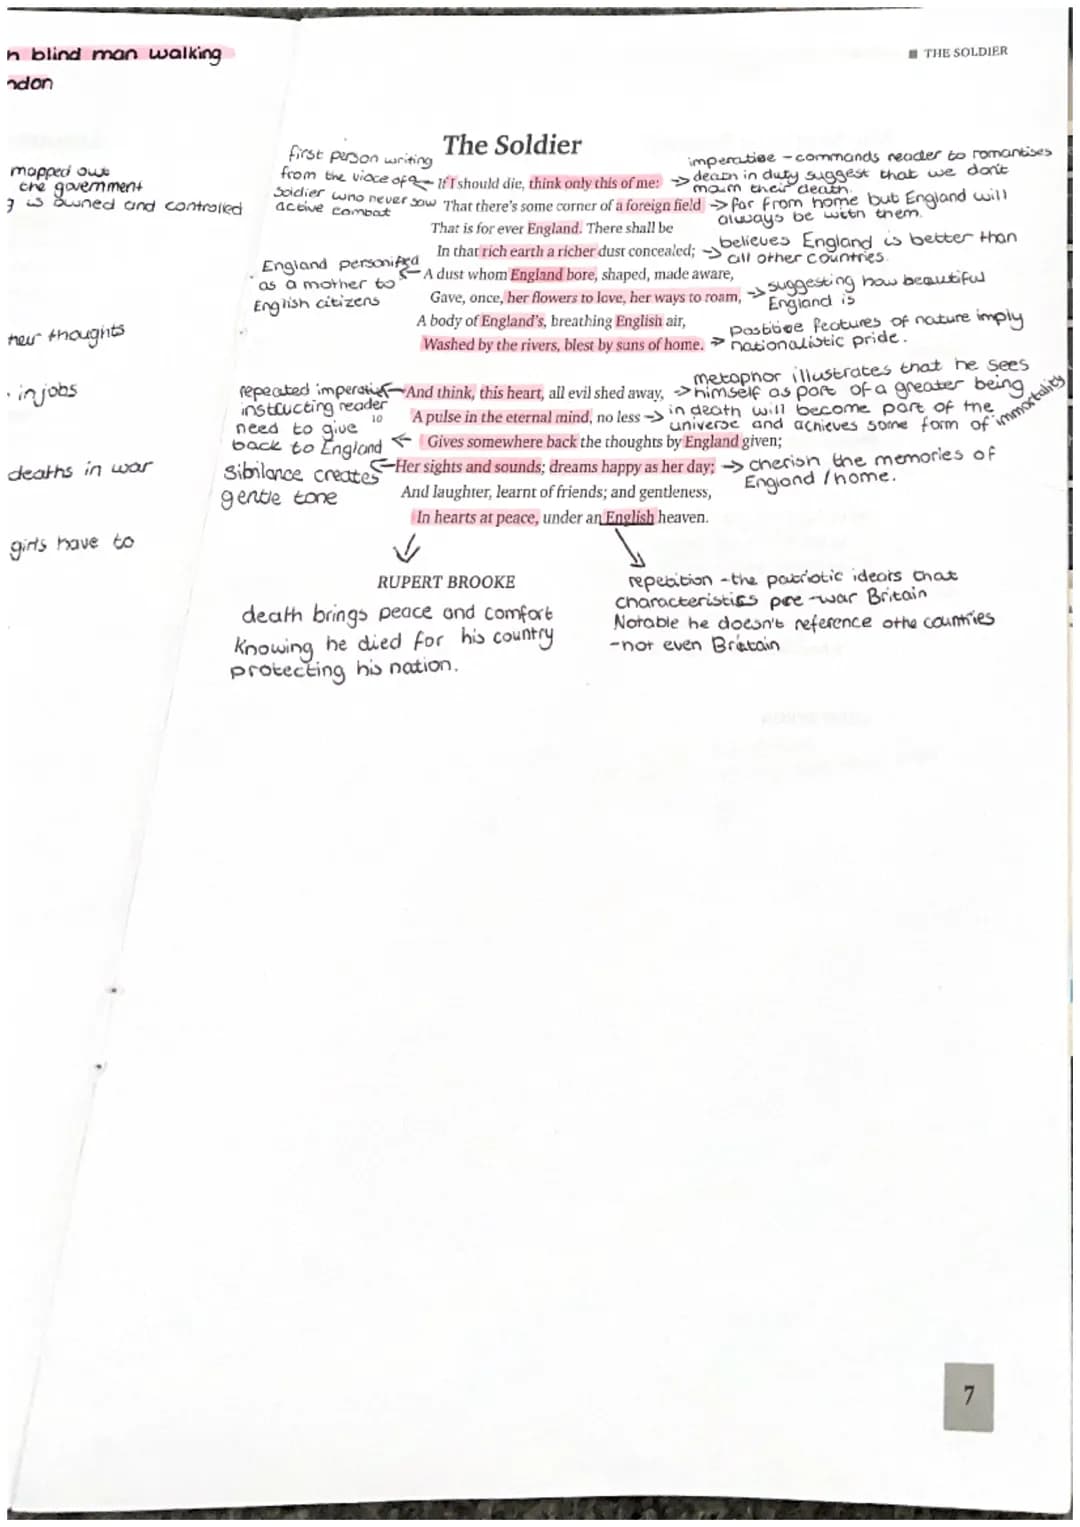 n blind man walking
ndon
mapped out
the government
g is owned and controlled
their thoughts
· in jobs
deaths in war
girls have to
THE SOLDIER
The Soldier
first person writing
from the vioce of a
soldier who never saw
active combat
If I should die, think only this of me:
That there's some corner of a foreign field
That is for ever England. There shall be
In that rich earth a richer dust concealed;
A dust whom England bore, shaped, made aware,
Gave, once, her flowers to love, her ways to roam,
A body of England's, breathing English air,
Washed by the rivers, blest by suns of home.
And think, this heart, all evil shed away,
10
A pulse in the eternal mind, no less
Gives somewhere back the thoughts by England given;
Her sights and sounds; dreams happy as her day;
And laughter, learnt of friends; and gentleness,
In hearts at peace, under an English heaven.
RUPERT BROOKE
England personified
as a mother to
English citizens
repeated imperative
instructing reader
need to give
back to England
Sibilance creates
gentle tone
imperative - commands reader to romantises
death in duty suggest that we don't
mourn their death.
far from home but England will
always be with them.
believes England is better than
all other countries.
suggesting how beautiful
England is
Positive features of nature imply
nationalistic pride.
metaphor illustrates that he sees
himself as part of a greater being
in death will become part of the
universe and achieves some form of immortality
cherish the memories of
England / home.
death brings peace and comfort
knowing he died for his country
protecting his nation.
repetition - the patriotic idears that
characteristics pre-war Britain
Notable he doesn't reference othe countries
- not even Britain
7